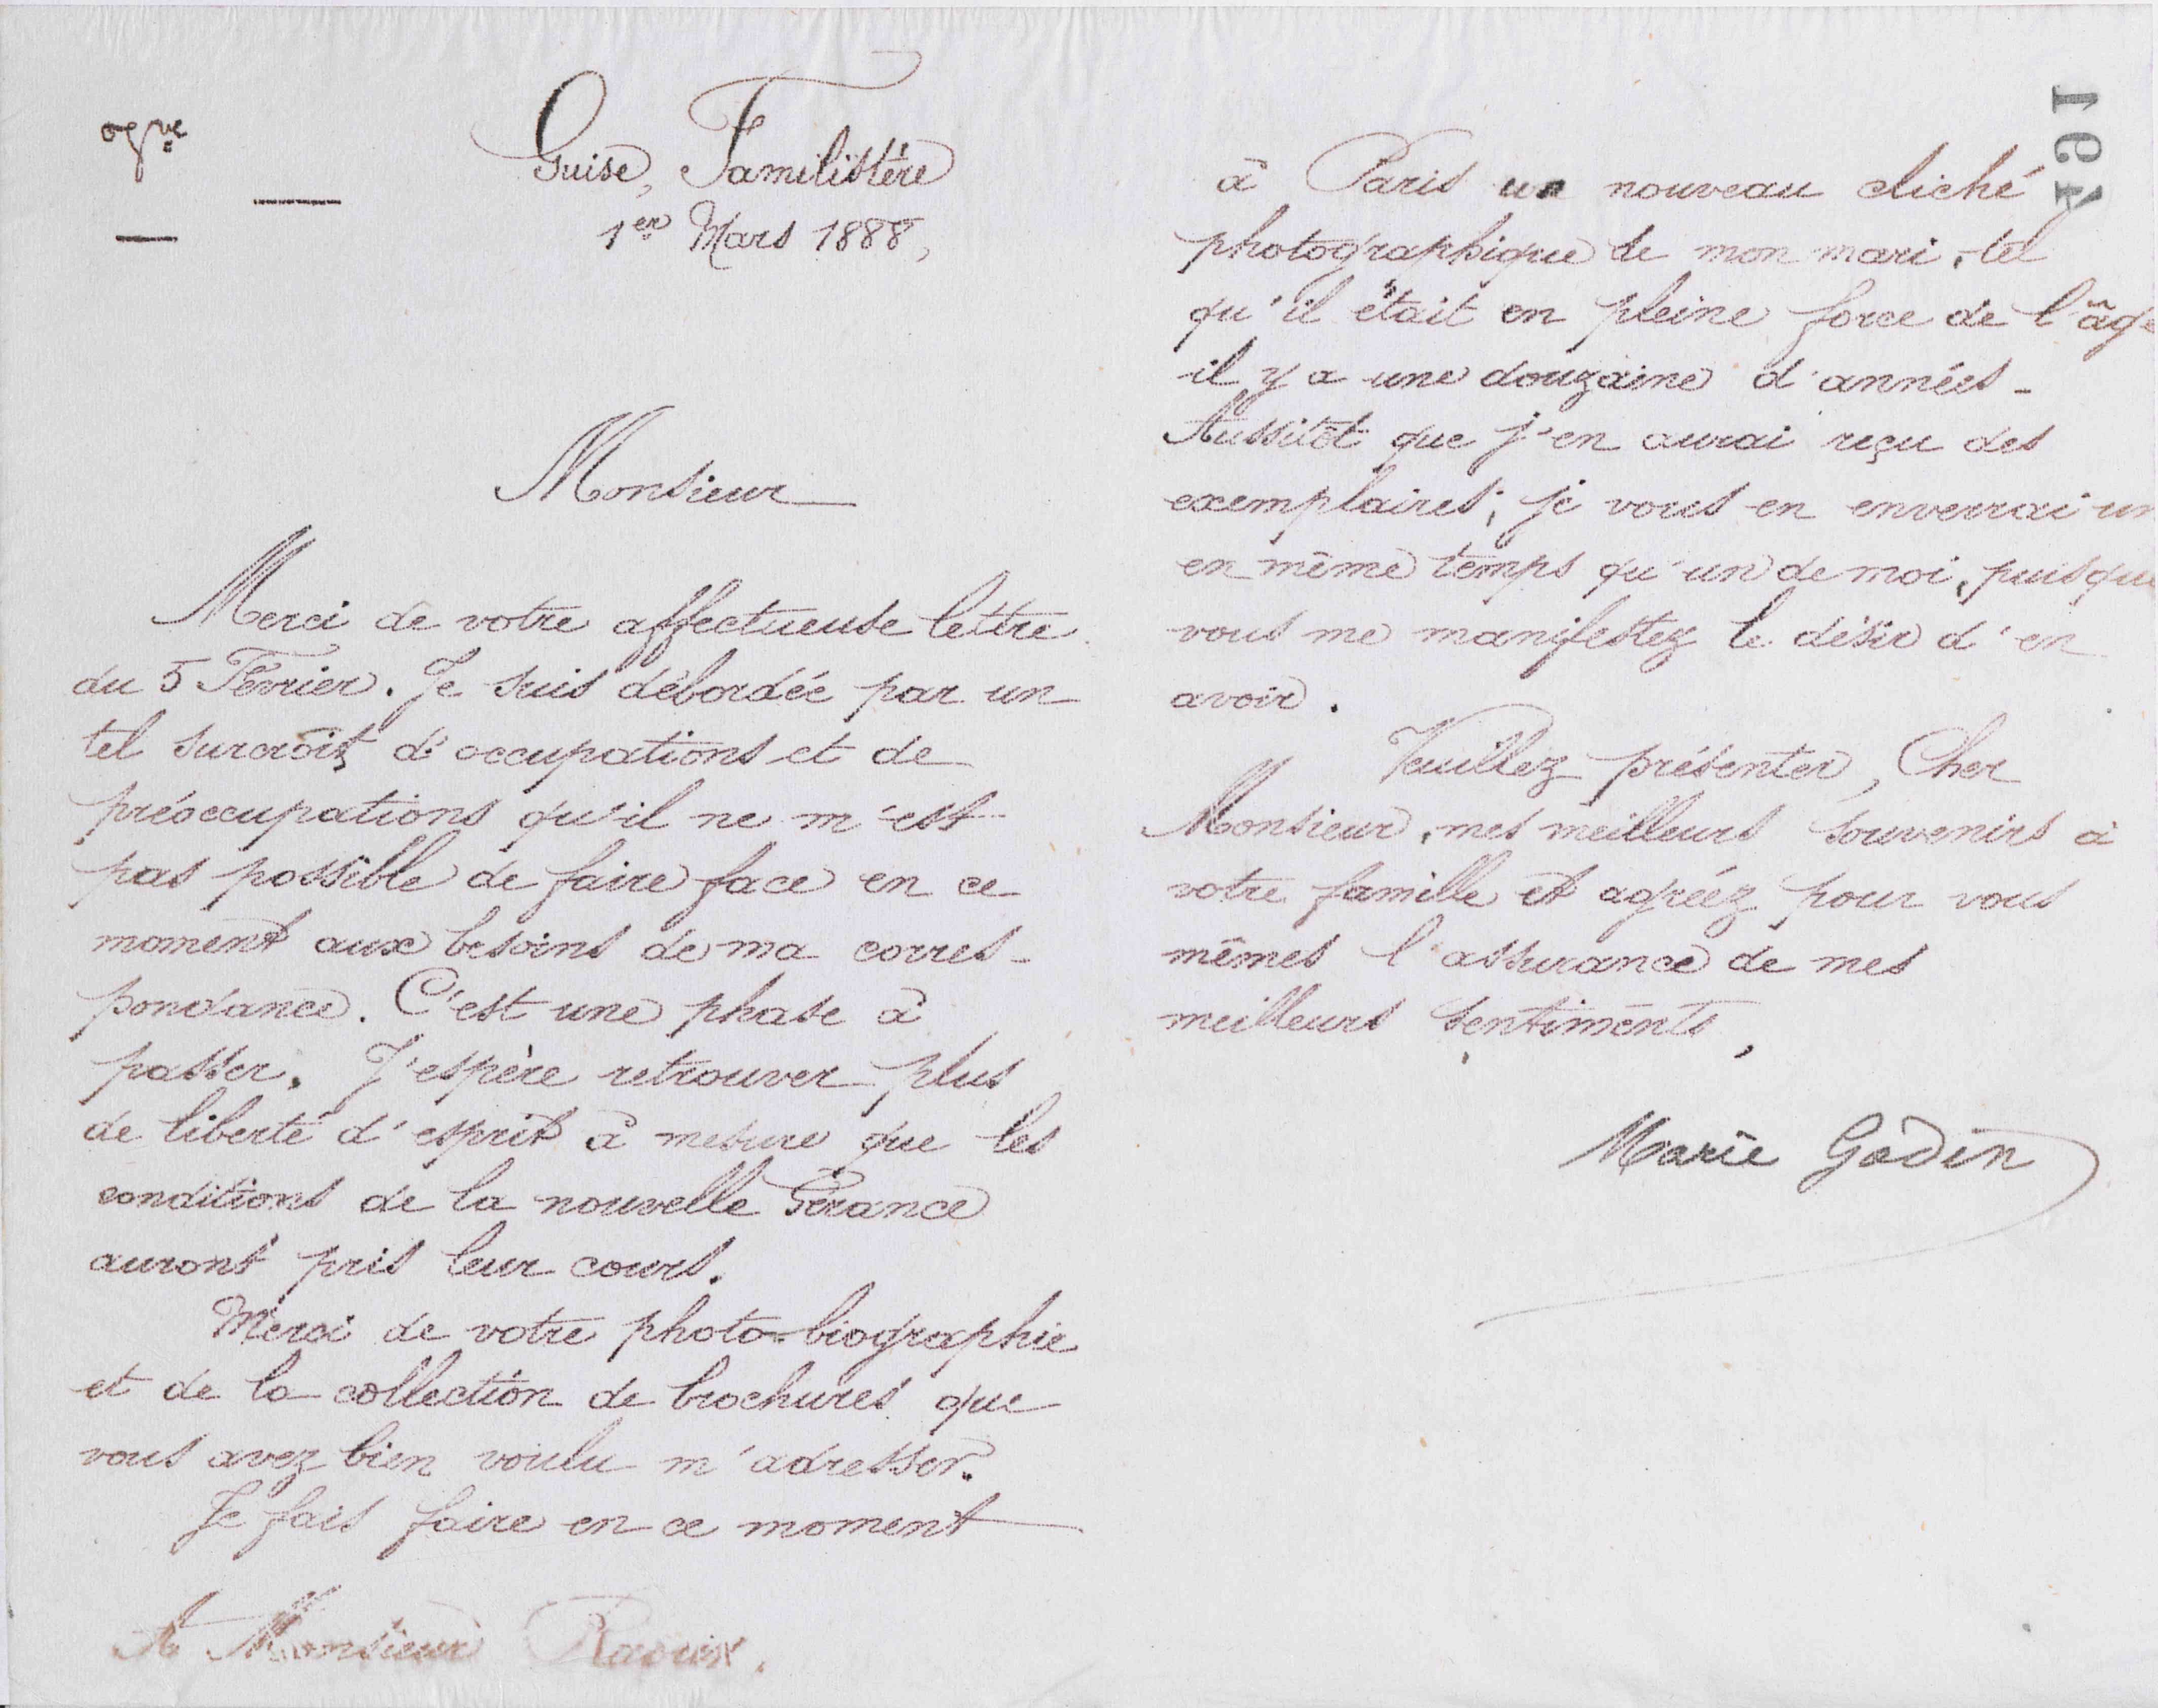 Guise, Familistère
1er Mars 1888,
Monsieur
Merci de votre affectueuse lettre
du 5 Février. Je suis débordée par un
tel surcroit d'occupations et de
préoccupations qu'il ne m'est
pas possible de faire face en ce
moment aux besoins de ma corres-
pondance. C'est une phase à
passer. J'espère retrouver plus
de liberté d'esprit à mesure que les
conditions de la nouvelle Gérance
auront pris leur cours.
Merci de votre photo-biographie
et de la collection de brochures que
vous avez bien voulu m'adresser.
Je fais faire en ce moment
A Monsieur
167
à Paris un nouveau cliché
photographique de mon mari, tel
qu'il était en pleine force de l'âge
il y a une douzaine d'années -
Aussitôt que j'en aurai reçu des
exemplaires, je vous en enverrai un
en même temps qu'un de moi, puisque
vous me manifestez le désir d'en
avoir.
Veuillez présenter, Cher
Monsieur, mes meilleurs souvenirs à
votre famille et agréez pour vous
mêmes l'assurance de mes
meilleurs sentiments,
Marie Godin